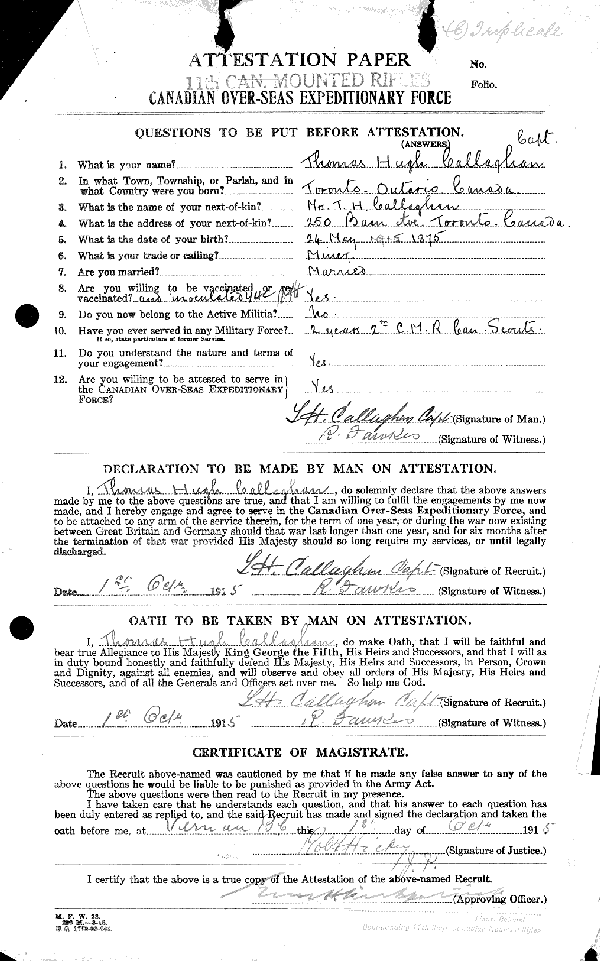 Triplicate
ATTESTATION PAPER
No.
11th CAN. MOUNTED RIFLES
Folio.
CANADIAN OVER-SEAS EXPEDITIONARY FORCE
QUESTIONS TO BE PUT BEFORE ATTESTATION.
(ANSWERS) Capt.
1. What is your name? Thomas Hugh Callaghan
2. In what Town, Township, or Parish, and in
what Country were you born? Toronto Ontario Canada
3. What is the name of your next-of-kin? Mr. T. H. Callaghan
4. What is the address of your next-of-kin? 250 Ave. Toronto. Canada
5. What is the date of your birth? 24 May 1915 1875
6. What is your trade or calling? Miner
7. Are you married? Married
8. Are you willing to be vaccinated or re-
vaccinated? and inoculated Yes.
9. Do you now belong to the Active Militia? No
10. Have you ever served in any Military Force? 2 years 2nd C M R Can Scouts.
If so, state particulars of former Service.
11. Do you understand the nature and terms of
your engagement? Yes.
12. Are you willing to be attested to serve in
the CANADIAN OVER-SEAS EXPEDITIONARY Yes
FORCE?
T.H. Callaghan Capt (Signature of Man.)
R. Fawkes (Signature of Witness.)
DECLARATION TO BE MADE BY MAN ON ATTESTATION.
I, Thomas Hugh Callaghan, do solemnly declare that the above answers
made by me to the above questions are true, and that I am willing to fulfil the engagements by me now
made, and I hereby engage and agree to serve in the Canadian Over-Seas Expeditionary Force, and
to be attached to any arm of the service therein, for the term of one year, or during the war now existing
between Great Britain and Germany should that war last longer than one year, and for six months after
the termination of that war provided His Majesty should so long require my services, or until legally
discharged.
T.H. Callaghan Capt (Signature of Recruit.)
Date 1st Octr 1915 R. Fawkes (Signature of Witness.)
OATH TO BE TAKEN BY MAN ON ATTESTATION.
I, Thomas Hugh Callaghan, do make Oath, that I will be faithful and
bear true Allegiance to His Majesty King George the Fifth, His Heirs and Successors, and that I will as
in duty bound honestly and faithfully defend His Majesty, His Heirs and Successors, in Person, Crown
and Dignity, against all enemies, and will observe and obey all orders of His Majesty, His Heirs and
Successors, and of all the Generals and Officers set over me. So help me God.
T.H. Callaghan Capt (Signature of Recruit.)
Date 1st Octr 1915 R. Fawkes (Signature of Witness.)
CERTIFICATE OF MAGISTRATE.
The Recruit above-named was cautioned by me that if he made any false answer to any of the
above questions he would be liable to be punished as provided in the Army Act.
The above questions were then read to the Recruit in my presence.
I have taken care that he understands each question, and that his answer to each question has
been duly entered as replied to, and the said Recruit has made and signed the declaration and taken the
oath before me, at Vernon BC this 1st day of Octr 1915
J.P. (Signature of Justice.)
I certify that the above is a true copy of the Attestation of the above-named Recruit.
(Approving Officer.)
M. F. W. 23.